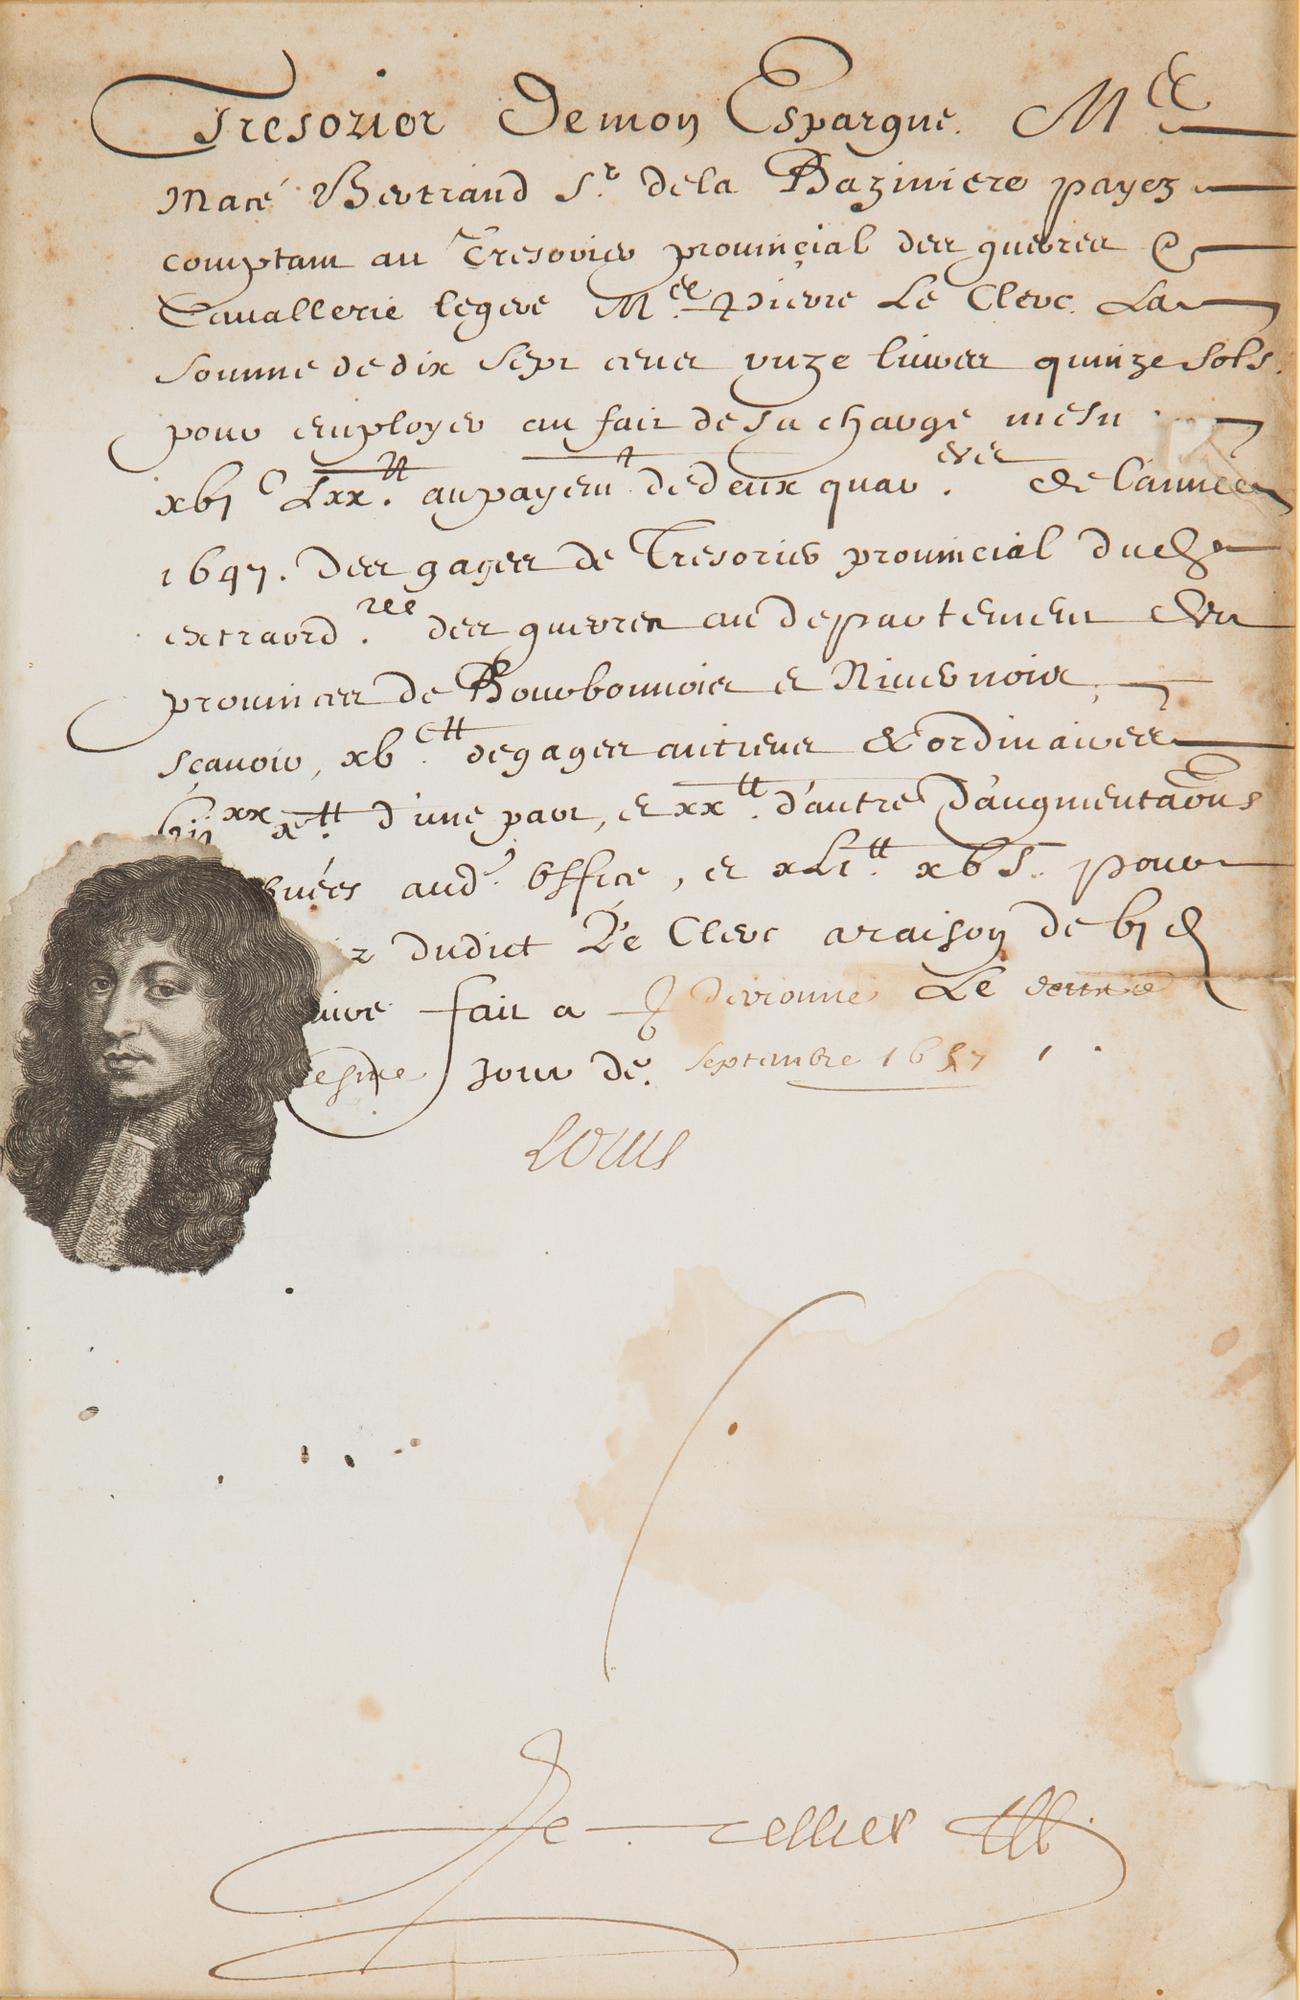 Tresorier de mon Espargne. M.re
Macé Bertrand S.r de la Baziniere payez
comptant au Tresorier prouincial des guerres &
Cauallerie legere M.re Pierre Le Clerc. La
somme de dix sept cens unze liures quinze sols.
pour employer au fait de sa charge mesm
xbj C Lxx.tt au payem.t de deux quar.ers de l'annee
1647. des gages de Tresorier prouincial de
extraord.res des guerres au departement des
prouinces de Bourbonnois et Niuernois,
sçauoir, xb.C tt de gages antiens & ordinaires
xx x.tt d'une part, et xx.tt d'autre d'augmentaons
buées aud. office, et xLi.tt xb S. pour
dudict Le Clerc a raison de bj d
fait a Le
esme Jour de. septembre 1657
Louis
Le Tellier